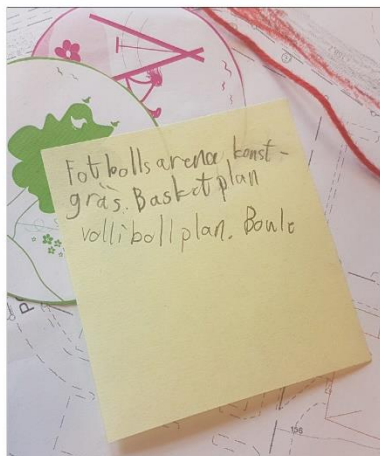 Fotbollsarena, konst-
gräs. Basketplan
volliboll plan. Boule
P
159